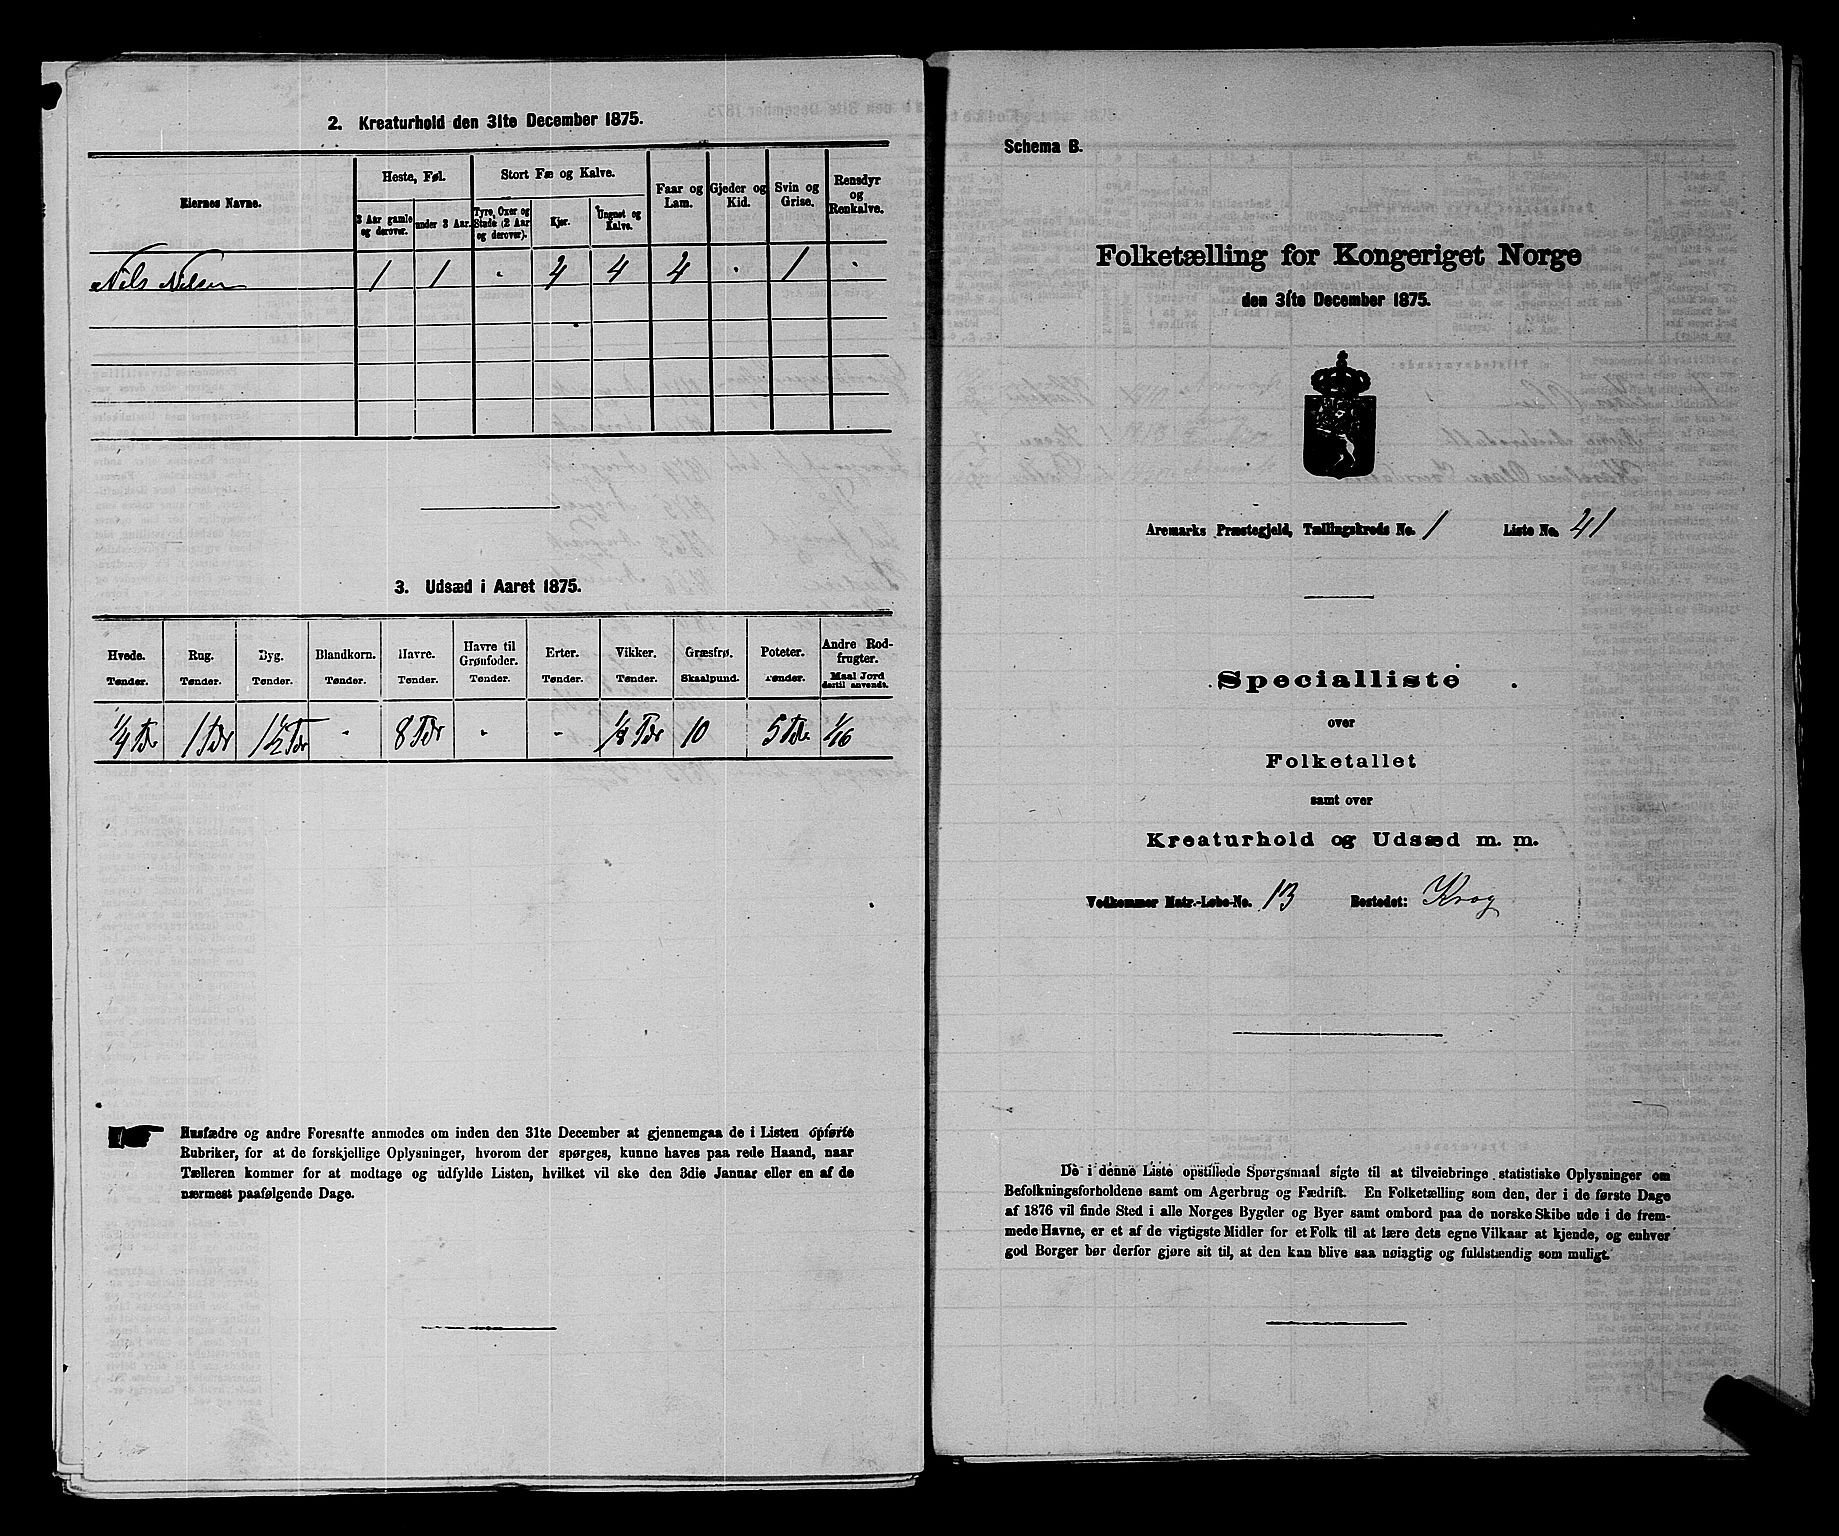 2. Kreaturhold den 31te December 1875.
Eiernes Navne.
Heste, Føl.
3 Aar gamle og derover.
under 3 Aar.
Stort Fæ og Kalve.
Tyre, Oxer og Stude (2 Aar og derover).
Kjør.
Ungnøt og Kalve.
Faar og Lam.
Gjeder og Kid.
Svin og Grise.
Rensdyr og Renkalve.
Nils Nilsen 1 1 . 4 4 4 . 1 .
3. Udsæd i Aaret 1875.
Hvede. Rug. Byg. Blandkorn. Havre. Havre til Grønfoder. Erter. Vikker. Græsfrø. Poteter. Andre Rodfrugter.
Tønder. Tønder. Tønder. Tønder. Tønder. Tønder. Tønder. Tønder. Skaalpund. Tønder. Maal Jord dertil anvendt.
1/4 Tdr 1 Tdr 1 1/2 Tdr - 8 Tdr - - 1/8 Tdr 10 5 Tdr 1/16
Husfædre og andre Foresatte anmodes om inden den 31te December at gjennemgaa de i Listen opførte
Rubriker, for at de forskjellige Oplysninger, hvorom der spørges, kunne haves paa rede Haand, naar
Tælleren kommer for at modtage og udfylde Listen, hvilket vil ske den 3die Januar eller en af de
nærmest paafølgende Dage.
Schema B.
Folketælling for Kongeriget Norge
den 31te December 1875.
Aremarks Præstegjeld, Tællingskreds No. 1 Liste No. 41
Specialliste
over
Folketallet
samt over
Kreaturhold og Udsæd m. m.
Vedkommer Matr.-Løbe-No. 13 Bostedet: Krog
De i denne Liste opstillede Spørgsmaal sigte til at tilveiebringe statistiske Oplysninger om
Befolkningsforholdene samt om Agerbrug og Fædrift. En Folketælling som den, der i de første Dage
af 1876 vil finde Sted i alle Norges Bygder og Byer samt ombord paa de norske Skibe ude i de frem-
mede Havne, er et af de vigtigste Midler for et Folk til at lære dets egne Vilkaar at kjende, og enhver
god Borger bør derfor gjøre sit til, at den kan blive saa nøiagtig og fuldstændig som muligt.